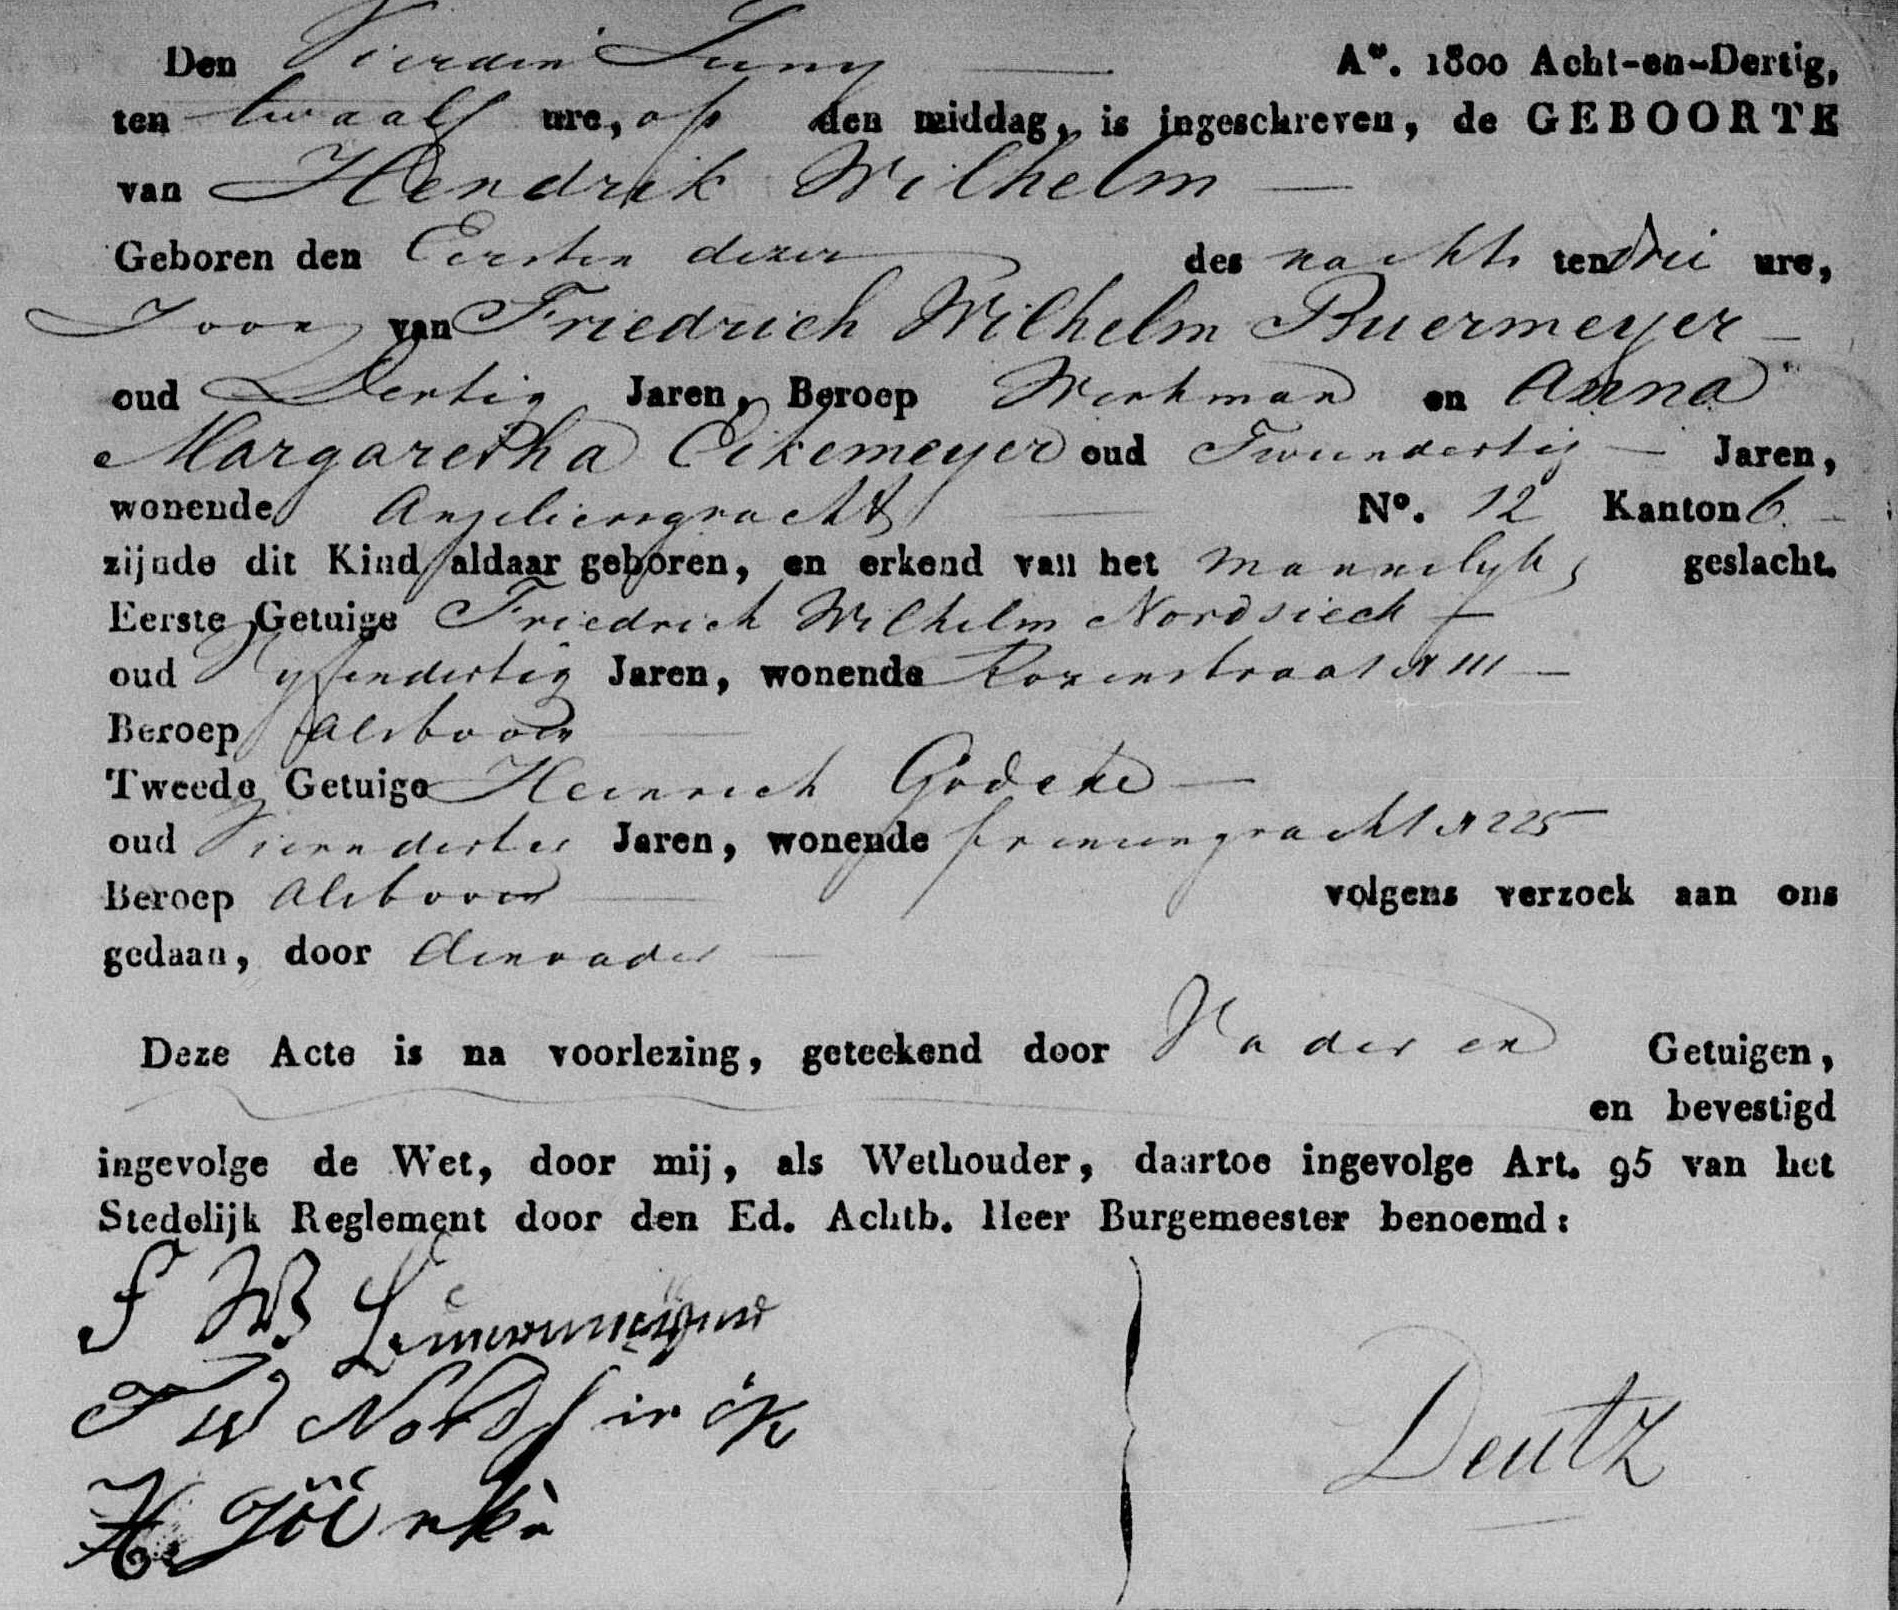 Den Vierden Juny A°. 1800 Acht-en-Dertig,
ten twaalf ure, op den middag, is ingeschreven, de GEBOORTE
van Hendrik Wilhelm
Geboren den Eersten dezer des nachts ten drie ure,
Zoon van Friedrich Wilhelm Buermeyer
oud Dertig Jaren, Beroep Werkman en Anna
Margaretha Eikemeyer oud Tweendertig Jaren,
wonende Anjeliersgracht N°. 12 Kanton 6
zijnde dit Kind aldaar geboren, en erkend van het Mannelyk geslacht.
Eerste Getuige Friedrich Wilhelm Nordsieck
oud Vyfendertig Jaren, wonende Rozenstraat N 111
Beroep Alsboven
Tweede Getuige Heinrich Godeke
oud Vierendertig Jaren, wonende prinsengracht N 225
Beroep Alsboven volgens verzoek aan ons
gedaan, door den vader
Deze Acte is na voorlezing, geteekend door Vader en Getuigen,
en bevestigd
ingevolge de Wet, door mij, als Wethouder, daartoe ingevolge Art. 95 van het
Stedelijk Reglement door den Ed. Achtb. Heer Burgemeester benoemd:
F W
F W Nordsieck
H.
Deutz